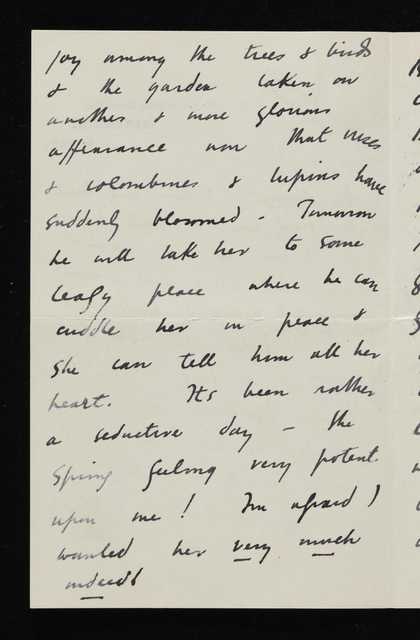 joy among the trees & birds
& the garden taken on
another & more glorious
appearance now that irises
& colombines & lupins have
suddenly blossomed - Tomorrow
he will take her to some
leafy place where he can
cuddle her in peace &
she can tell him all her
heart. Its been rather
a seductive day - the
Spring feeling very potent
upon me! Im afraid I
wanted her very much
indeed!